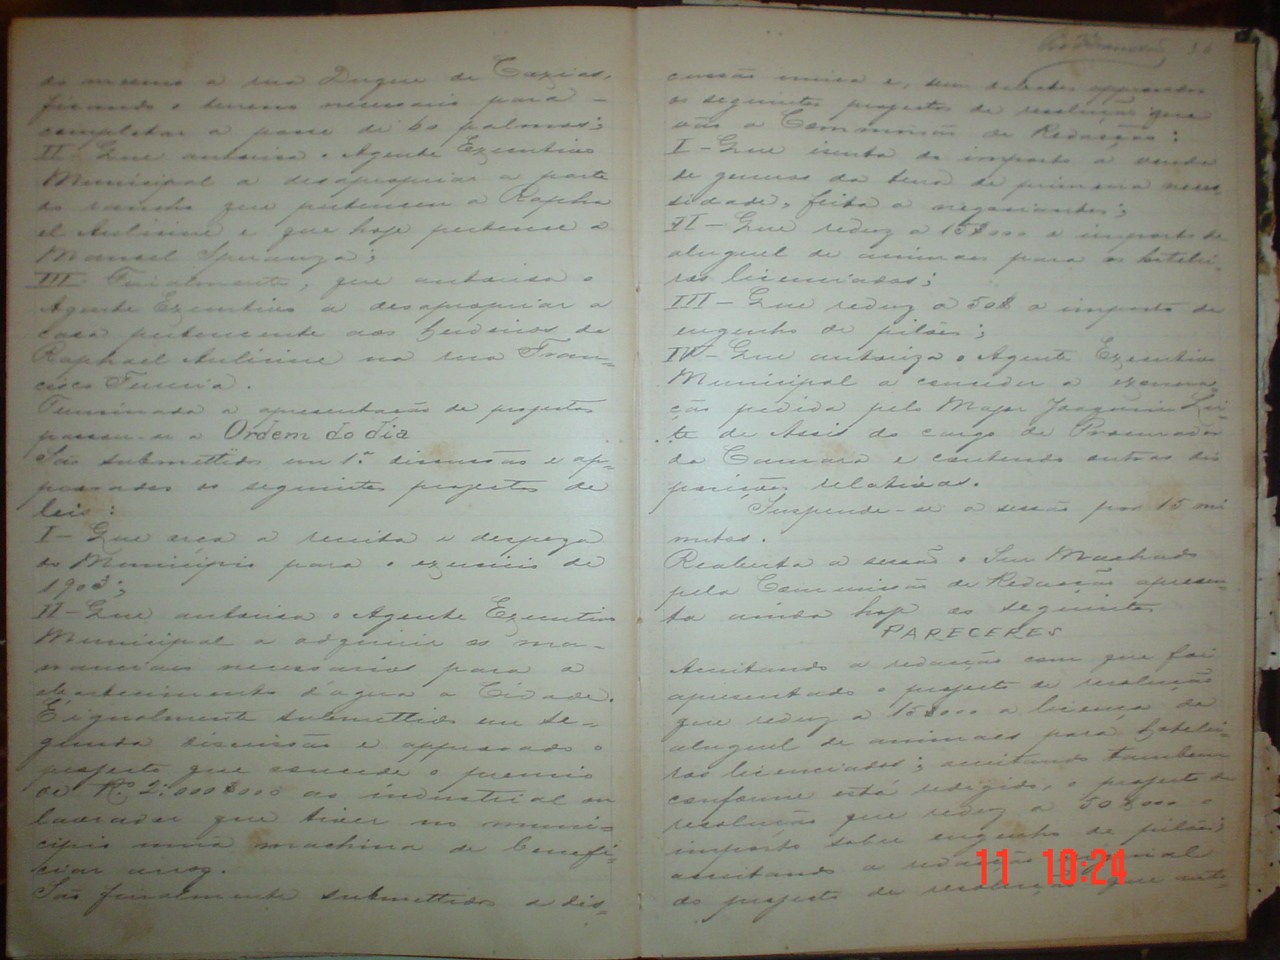 do mesmo a rua Duque de Caxias,
ficando o terreno necessario para
completar a posse de 60 palmos;
II- Que autorisa o Agente Ezecutivo
Municipal a desapropriar a parte
do rancho que pertenceu a Rapha
el Aulinine e que hoje pertence a
Manoel Speranza;
III- Finalmente, que autorisa o
Agente Ezecutivo a desapropriar a
casa pertencente aos herdeiros de
Raphael Aulinine na rua Fran-
cisco Ferreira.
Terminada a apresentação de projectos
passou-se a Ordem do dia
São submettidos em 1ª discussão e ap-
provados os seguintes projectos de
leis:
I- Que orça a receita e despeza
do Municipio para o ezercicio de
1903;
II- Que autorisa o Agente Ezecutivo
Municipal a adquirir os ma-
nanciaes necessarios para o
abastecimento d'agua a Cidade.
É igualmente submettido em se-
gunda discussão e approvado o
projecto que concede o premio
de Rs 2:000$000 ao industrial ou
lavrador que tiver no muni-
cipio uma machina de benefi-
ciar arroz.
São finalmente submettidos a dis-
16
cussão unica e, sem debates approvados
os seguintes projectos de resolução que
vão a Commissão de Redacção:
I- Que isenta do imposto a venda
de generos da terra de primeira neces
sidade, feita a negociantes;
II- Que reduz a 15$000 o imposto de
aluguel de animaes para os hotelei-
ros licenciados;
III- Que reduz a 50$ o imposto de
engenho de pilões;
IV- Que autoriza o Agente Ezecutivo
Municipal a conceder a ezonera-
ção pedida pelo Major Joaquim Lei-
te de Assis do cargo de Procurador
da Camara e contendo outras dis
posições relativas.
Suspende-se a sessão por 15 mi
nutos.
Reaberta a sessão o Snr Machado
pela Commissão de Redacção apresen-
ta ainda hoje os seguintes
PARECERES
Acceitando a redacção com que foi
apresentado o projecto de resolução
que reduz a 15$000 a licença de
aluguel de animaes para hotelei-
ros licenciados; acceitando tambem
conforme está redigido, o projecto de
resolução que reduz a 50$000 o
imposto sobre engenho de pilões;
acceitando a redacção original
do projecto de resolução que auto-
11 10:24